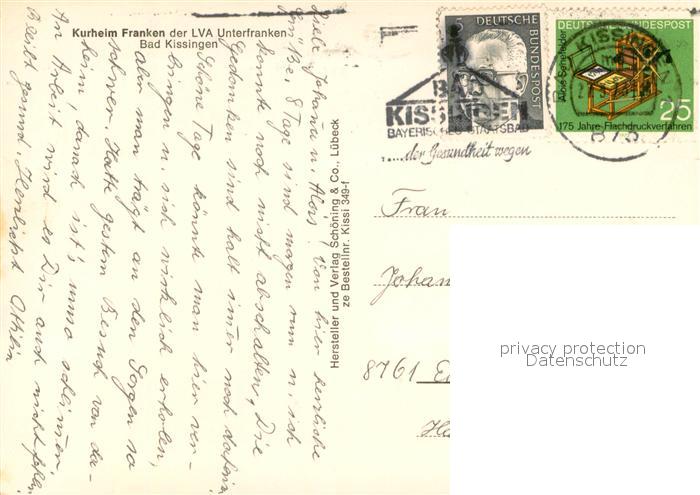 Kurheim Franken der LVA Unterfranken
Bad Kissingen
Liebe Johanna u. Alois! Von hier herzliche
Grüße. 8 Tage sind morgen rum u. ich
konnte noch nicht abschalten. Die
Gedanken sind halt immer noch daheim.
Schöne Tage könnte man hier ver-
bringen u. sich wirklich erholen,
aber man trägt an den Sorgen so
schwer. Hatte gestern Besuch von da-
heim, danach ist's umso schlimmer.
An Arbeit wird es Dir auch nicht fehlen.
Bleibt gesund. Herzlichst Ottilie
Hersteller und Verlag Schöning & Co., Lübeck
ze Bestellnr. Kissi 349-f
5
DEUTSCHE
BUNDESPOST
BAD
KISSINGEN
BAYERISCHES STAATSBAD
.....der Gesundheit wegen
DEUTSCHE BUNDESPOST
Alois Senefelder
KISSINGEN
25
175 Jahre Flachdruckverfahren
873
Frau
Johan
8761
privacy protection
Datenschutz